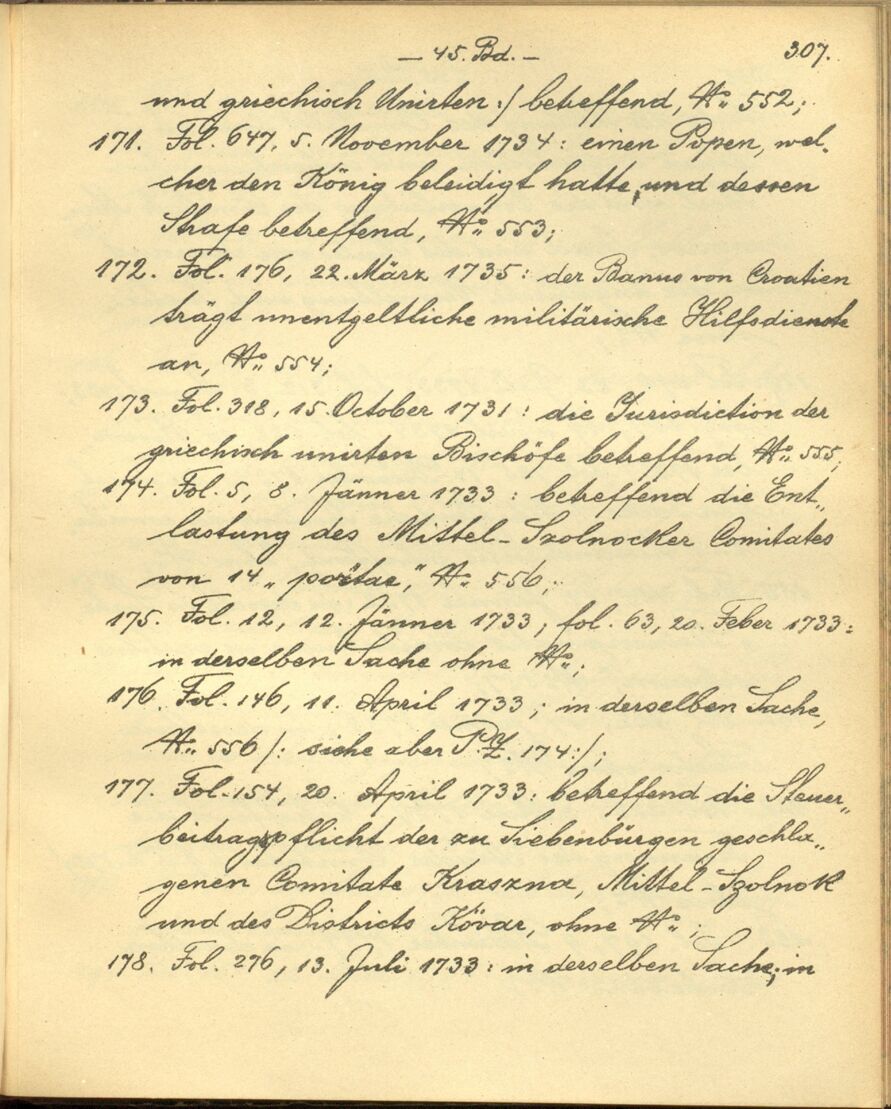 — 45. Bd. — 307.
und griechisch Unirten :/ betreffend, No. 552;
171. Fol. 647, 5. November 1734 : einen Popen, wel-
cher den König beleidigt hatte, und dessen
Strafe betreffend, No. 553;
172. Fol. 176, 22. März 1735 : der Banus von Croatien
trägt unentgeltliche militärische Hilfsdienste
an, No. 554;
173. Fol. 318, 15. October 1731 : die Jurisdiction der
griechisch unirten Bischöfe betreffend, No. 555;
174. Fol. 5, 8. Jänner 1733 : betreffend die Ent„
lastung des Mittel-Szolnocker Comitates
von 14 „portae“, No. 556;
175. Fol. 12, 12. Jänner 1733, fol. 63, 20. Feber 1733 :
in derselben Sache ohne No.;
176. Fol. 146, 11. April 1733 ; in derselben Sache,
No. 556 /: siehe aber P.Z. 174 :/;
177. Fol. 154, 20. April 1733 : betreffend die Steuer„
beitragspflicht der zu Siebenbürgen geschla„
genen Comitate Kraszna, Mittel-Szolnok
und des Districts Kövar, ohne No. ;
178. Fol. 276, 13. Juli 1733 : in derselben Sache; in